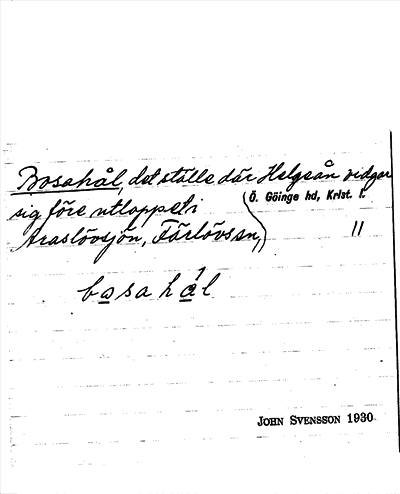 Bosahål, det ställe där Helgeån vidgar
sig före utloppet i (Ö. Göinge hd, Krist. l.
Araslövsjön, Färlövs sn,) 11
bosahål
JOHN SVENSSON 1930